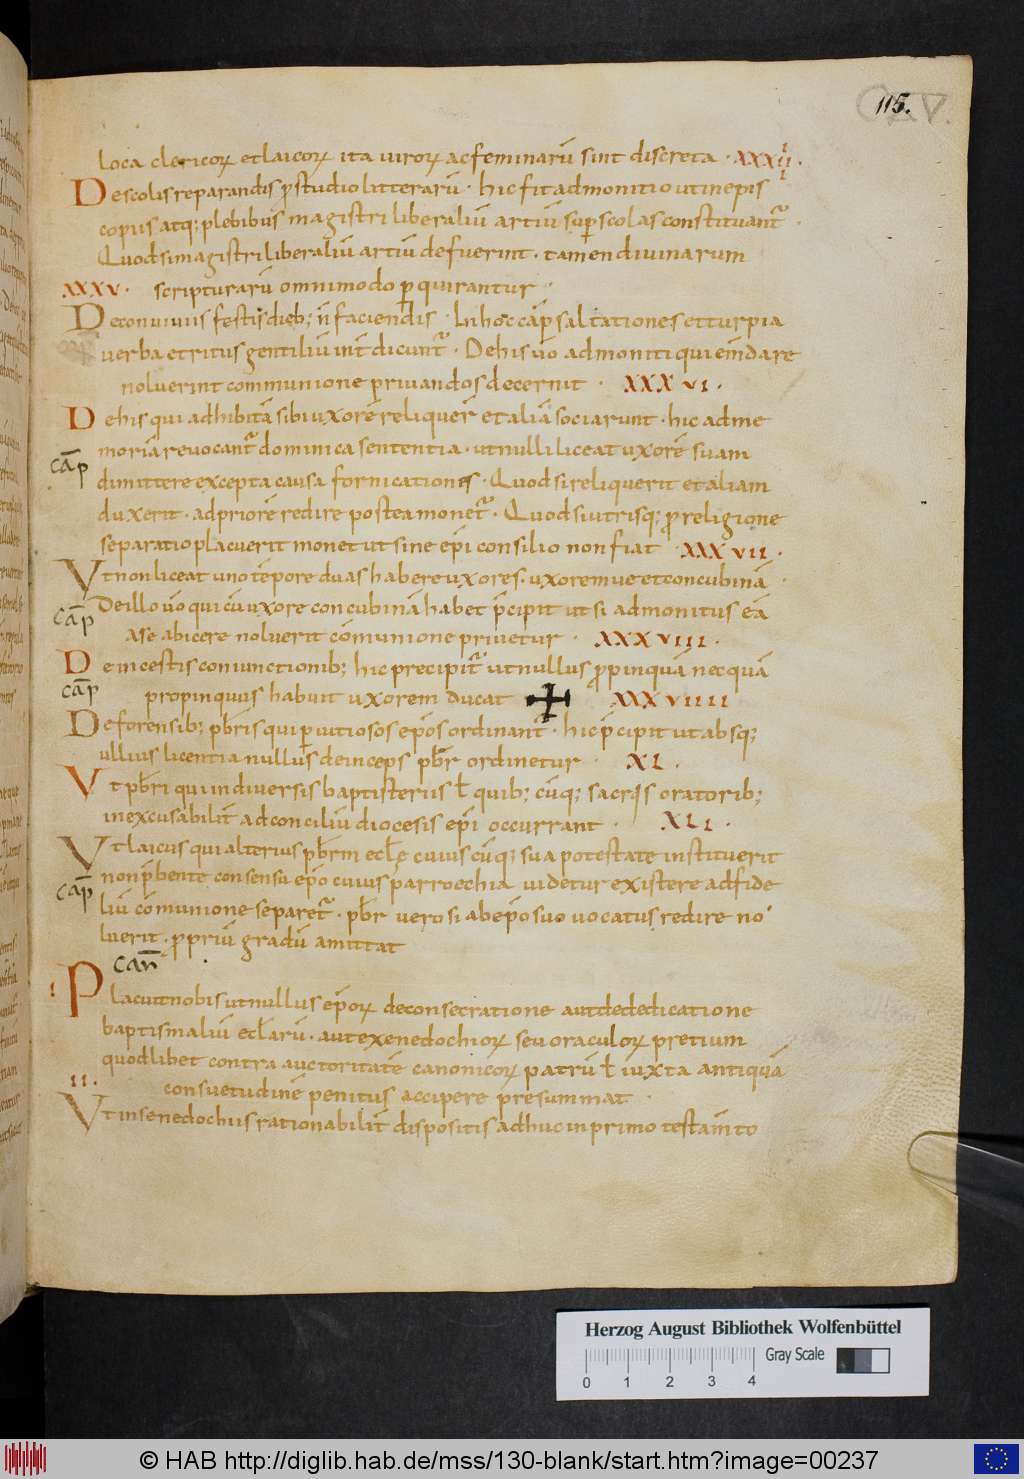 115. CXV.
loca clericoꝝ et laicoꝝ ita uiroꝝ ac feminarū sint discreta · XXXIII.
De scolis reparandis ꝓ studio litterarū · hic fit admonitio ut in epis
copus atq; plebibus magistri liberaliū artiū sup̄ scolas constituant᷑ ·
Quod si magistri liberaliū artiū defuerint · tamen diuinarum
XXXV. scripturarū omnimodo ꝑquirantur ·
De conuiuiis festis dieb; n̄ faciendis · In hoc cap̄ saltationes et turpia
uerba et ritus gentiliū int̄dicunt᷑ · De his u̅o admoniti qui em̄dare
noluerint communione priuandos decernit · XXXVI.
De his qui adhibitā sibi uxorē reliquer̄ et aliā sociarunt · hic ad me
moriā reuocant᷑ dominica sententia · ut nulli liceat uxorē suam
cap̄
dimittere excepta causa fornicationis · Quod si reliquerit et aliam
duxerit · ad priorē redire postea monet᷑ · Quod si utrisq; ꝓ religione
separatio placuerit monet ut sine ep̄i consilio non fiat · XXXVII.
Vt non liceat uno tēpore duas habere uxores · uxoremue et concubinā ·
De illo u̅o qui cū uxore concubinā habet p̄cipit ut si admonitus eā
cap̄
a se abicere noluerit cōmunione priuetur · XXXVIII.
De incestis coniunctionib; hic precipit᷑ ut nullus ꝓpinquā nec quā
cap̄
propinquus habuit uxorem ducat XXXVIIII
De forensib; pb̄ris qui ꝑ uitiosos ep̄os ordinant᷑ · hic p̄cipit ut absq;
ullius licentia nullus deinceps pb̄r ordinetur · XL.
Vt pb̄ri qui in diuersis baptisteriis ł quib; cūq; sacris oratorib;
inexcusabilit̄ ad conciliū diocesis ep̄i occurrant · XLI.
Vt laicus qui alterius pb̄rm eccł̄ę cuius cūq; sua potestate instituerit
non p̄bente consensu ep̄o cuius parroechia uidetur existere ad fide
cap̄
liū cōmunione separet᷑ · pb̄r uero si ab ep̄o suo uocatus redire no
luerit · ꝓpriū gradū amittat
can̄
I Placuit nobis ut nullus ep̄oꝝ de consecratione aut de dedicatione
baptismaliū eccł̄arū · aut exenedochioꝝ seu oraculoꝝ pretium
quodlibet contra auctoritatē canonicoꝝ patrū ł iuxta antiquā
II. consuetudinē penitus accipere presummat ·
Vt in senedochiis rationabilit̄ dispositis ad huc in primo testam̄to
Herzog August Bibliothek Wolfenbüttel
Gray Scale
0 1 2 3 4
© HAB http://diglib.hab.de/mss/130-blank/start.htm?image=00237